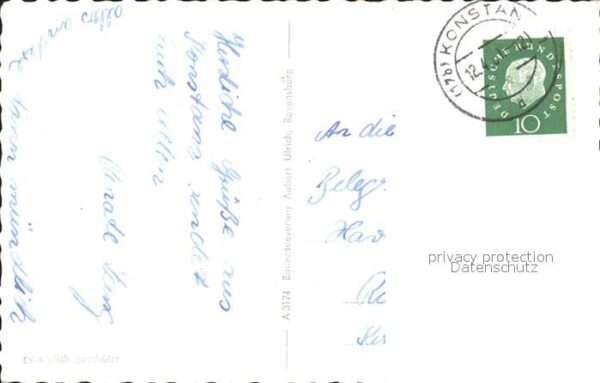 Herzliche Grüße aus
Konstanz sendet
euch allen
Renate
alles andere
dann mündlich
Gesetzlich geschützt
A 3124 Bodenseeverlag Aubert Ulrich, Ravensburg
(17b) KONSTAN
12.4.
DEUTSCHE BUNDESPOST
10
An die
Beleg
privacy protection
Datenschutz